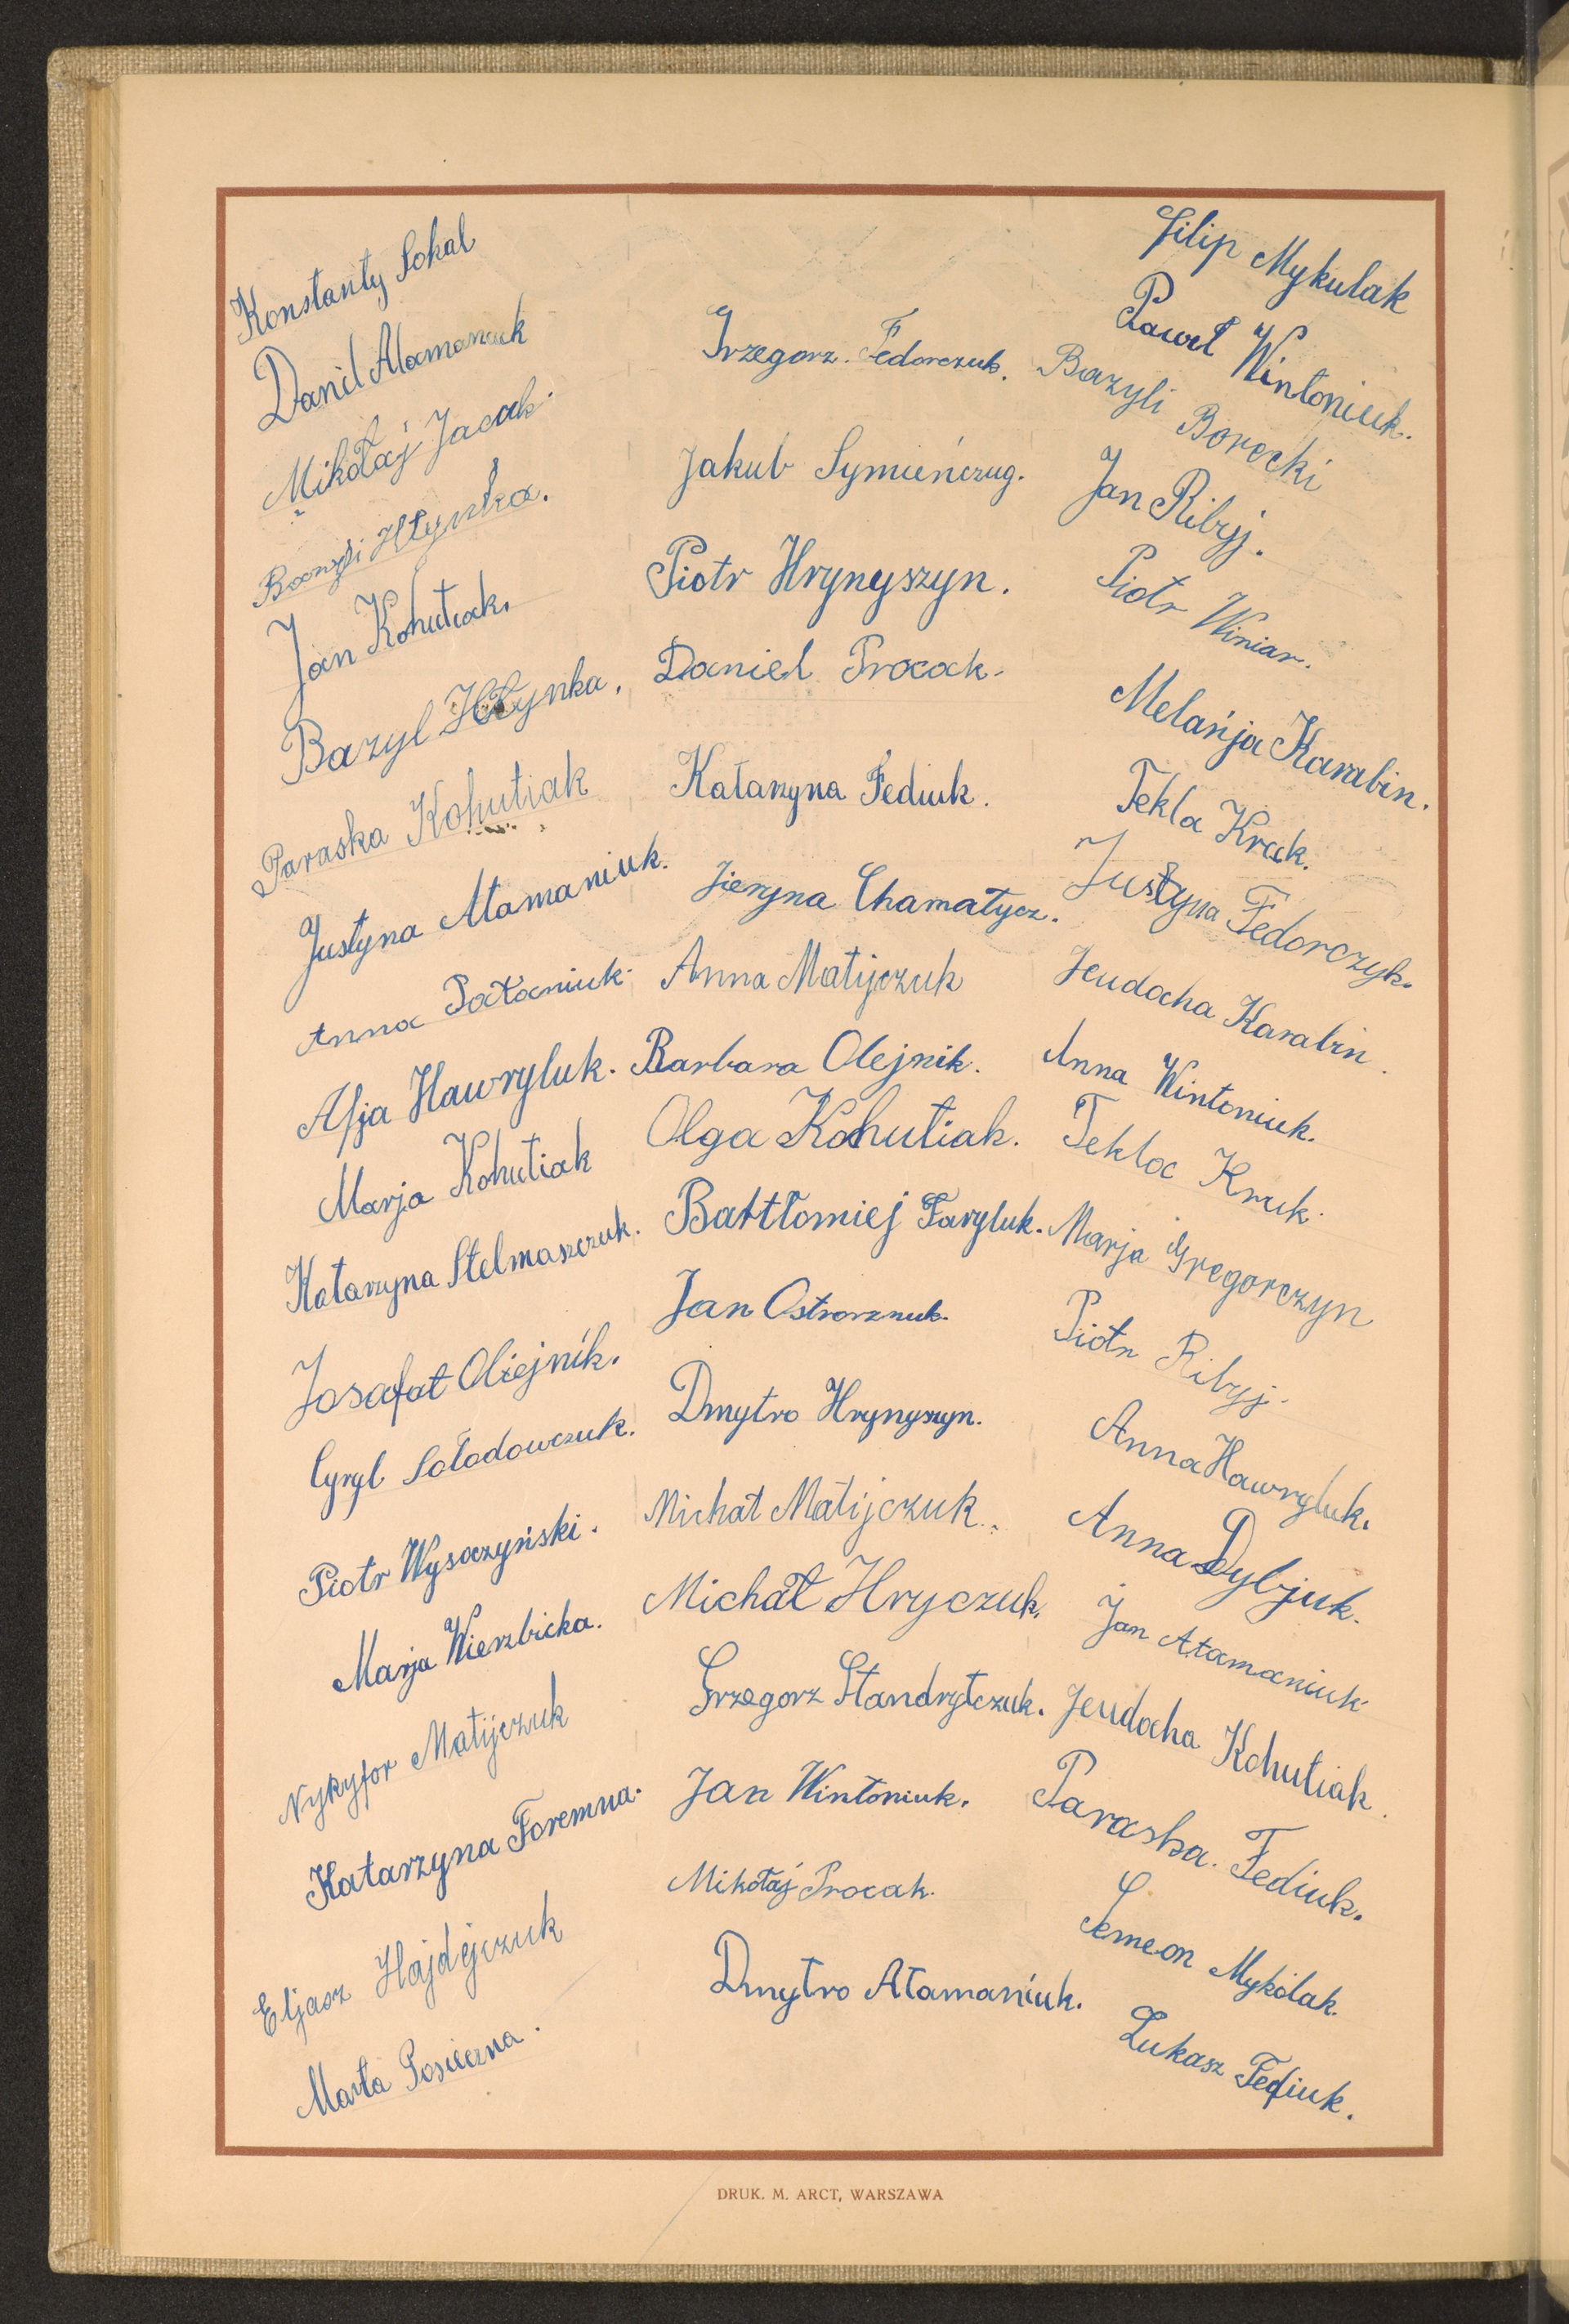 Konstanty Sokal
Danil Atamaniuk
Mikołaj Jacuk.
Bazyli Hłynka.
Jan Kohutiak.
Bazyl Hłynka.
Paraska Kohutiak
Justyna Atamaniuk.
Anna Pałaniuk.
Afja Hawryluk.
Marja Kohutiak
Katarzyna Stelmaszczuk.
Josafat Oliejnik.
Cyryl Sołodowczuk.
Piotr Wysoczyński.
Marja Wierzbicka.
Nykyfor Matijczuk
Katarzyna Foremna.
Eljasz Hajdejczuk
Marta Posieczna.
Grzegorz. Fedorczuk.
Jakub Symieńczug.
Piotr Hrynyszyn.
Daniel Procak.
Katarzyna Fediuk.
Jieryna Chamatycz.
Anna Matijczuk
Barbara Olejnik.
Olga Kohutiak.
Barttłomiej Faryluk.
Jan
Dmytro Hrynyszyn.
Michał Matijczuk.
Michał Hryczuk.
Grzegorz Standrytczuk.
Jan Wintoniuk.
Mikołaj Procak.
Dmytro Atamaniuk.
Filip Mykulak
Paweł Wintoniuk.
Bazyli Borecki
Jan Ribyj.
Piotr Winiar.
Melańja Karabin.
Tekla Kruk.
Justyna Fedorczyk.
Jeudocha Karabin.
Anna Wintoniuk.
Tekla Kruk.
Marja Gregorczyn
Piotr Ribyj.
Anna Hawryluk.
Anna Dybjuk.
Jan Atamaniuk
Jeudocha Kohutiak.
Paraska. Fediuk.
Semeon Mykólak.
Łukasz Fediuk.
DRUK. M. ARCT, WARSZAWA